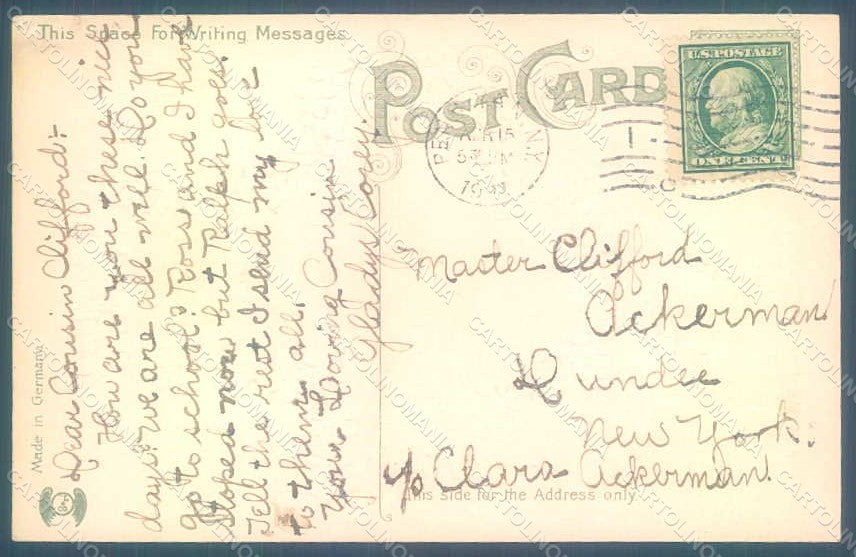 This Space For Writing Messages
POST CARD
Dear Cousin Clifford:-
How are you these nice
days? We are all well. Do you
go to school? Ross and I have
stoped now but Ralph goes.
Tell the rest I send my love
to them all.
Your Loving Cousin
Gladys Corey.
Made in Germany
U.S. POSTAGE
ONE CENT
PE
N.Y.
APR 15
5 PM
Master Clifford
Ackerman
Dundee
New York.
c/o Clara Ackerman.
This Side for the Address only.
CARTOLINOMANIA